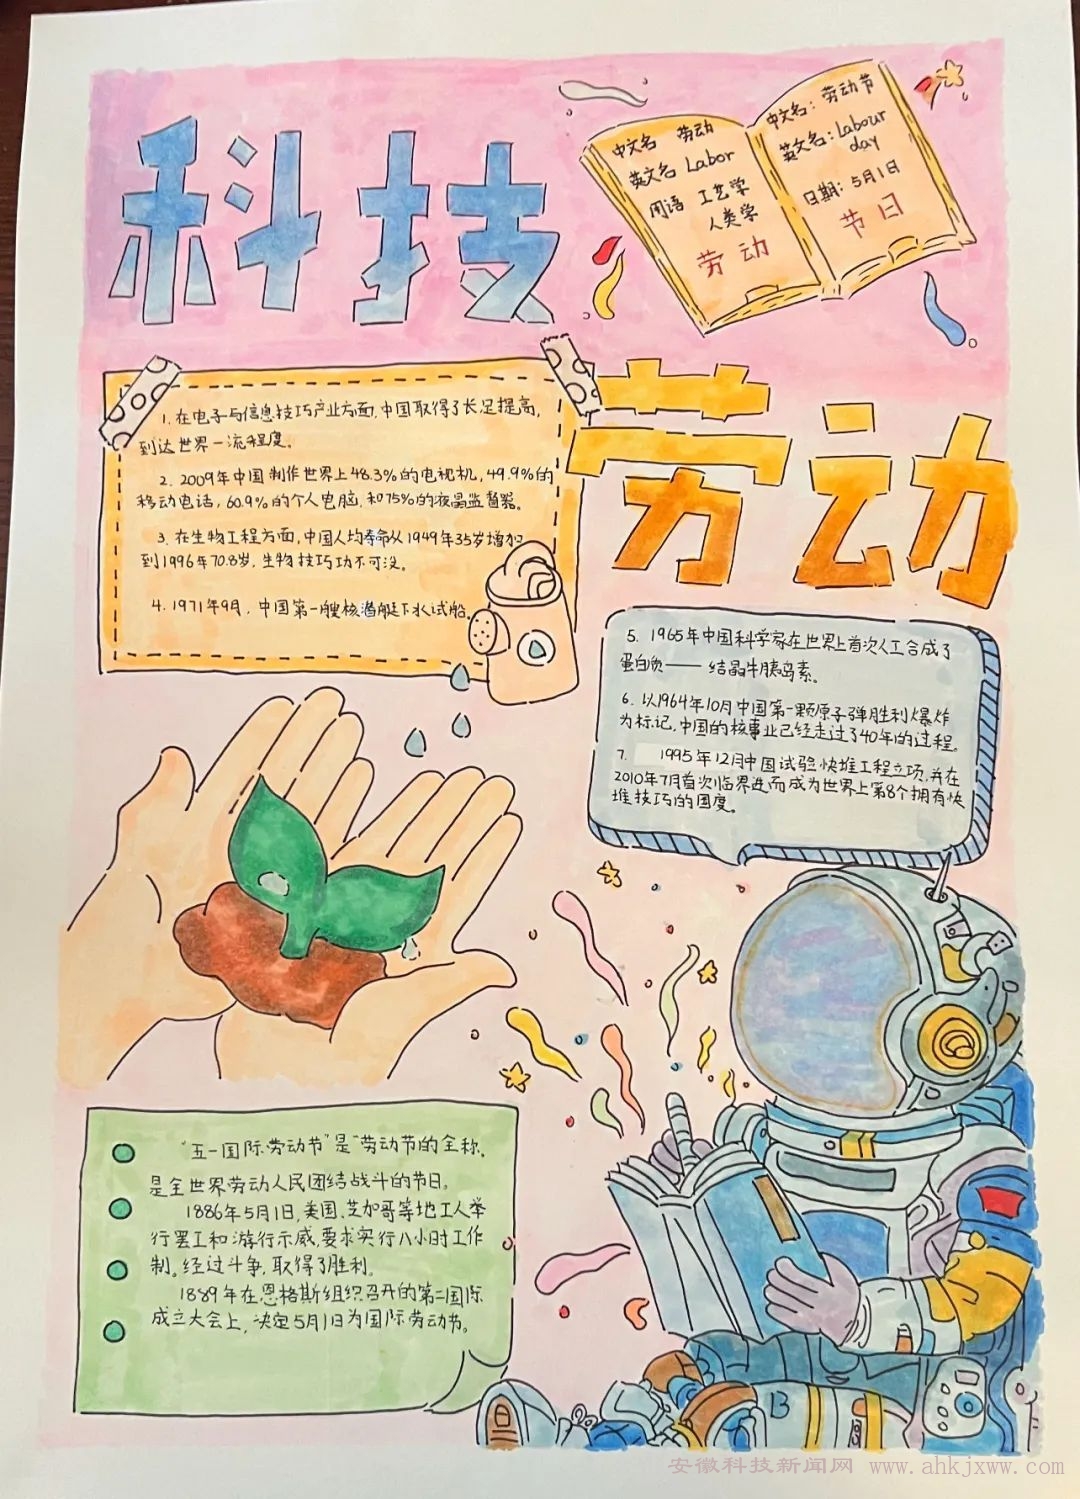 科技
中文名 劳动
英文名 Labor
用语 工艺学
人类学
劳动
中文名：劳动节
英文名：Labour
day
日期：5月1日
节日
劳动
1. 在电子与信息技巧产业方面，中国取得了长足提高，
到达世界一流程度。
2. 2009年中国制作世界上48.3%的电视机，49.9%的
移动电话，60.9%的个人电脑，和75%的液晶监督器。
3. 在生物工程方面，中国人均寿命从1949年35岁增加
到1996年70.8岁，生物技巧功不可没。
4. 1971年9月，中国第一艘核潜艇下水试船。
5. 1965年中国科学家在世界上首次人工合成了
蛋白质——结晶牛胰岛素。
6. 以1964年10月中国第一颗原子弹胜利爆炸
为标记，中国的核事业已经走过了40年的过程。
7. 1995年12月中国试验快堆工程立项，并在
2010年7月首次临界进而成为世界上第8个拥有快
堆技巧的国度。
“五一国际劳动节”是“劳动节的全称，
是全世界劳动人民团结战斗的节日。
1886年5月1日，美国芝加哥等地工人举
行罢工和游行示威，要求实行八小时工作
制。经过斗争，取得了胜利。
1889年在恩格斯组织召开的第二国际
成立大会上，决定5月1日为国际劳动节。
B
安徽科技新闻网 www.ahkjxww.com